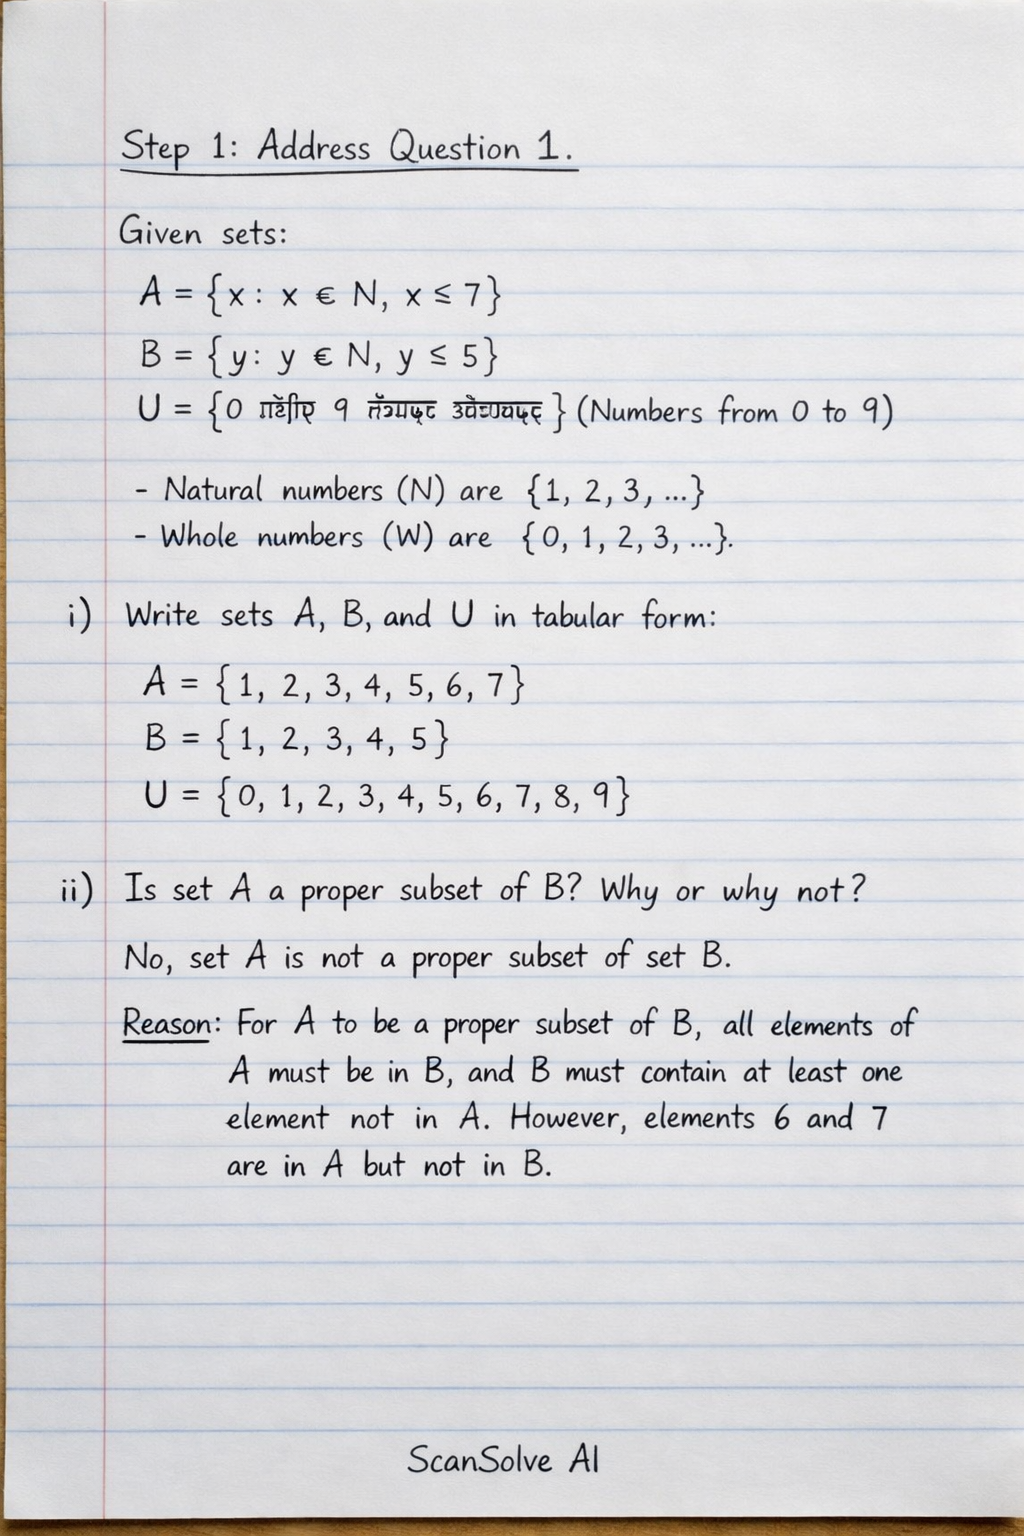 Step 1: Address Question 1.
Given sets:
A = {x: x € N, x ≤ 7}
B = {y: y € N, y ≤ 5}
U = {0 9 } (Numbers from 0 to 9)
- Natural numbers (N) are {1, 2, 3, ...}
- Whole numbers (W) are {0, 1, 2, 3, ...}.
i) Write sets A, B, and U in tabular form:
A = {1, 2, 3, 4, 5, 6, 7}
B = {1, 2, 3, 4, 5}
U = {0, 1, 2, 3, 4, 5, 6, 7, 8, 9}
ii) Is set A a proper subset of B? Why or why not?
No, set A is not a proper subset of set B.
Reason: For A to be a proper subset of B, all elements of
A must be in B, and B must contain at least one
element not in A. However, elements 6 and 7
are in A but not in B.
ScanSolve AI